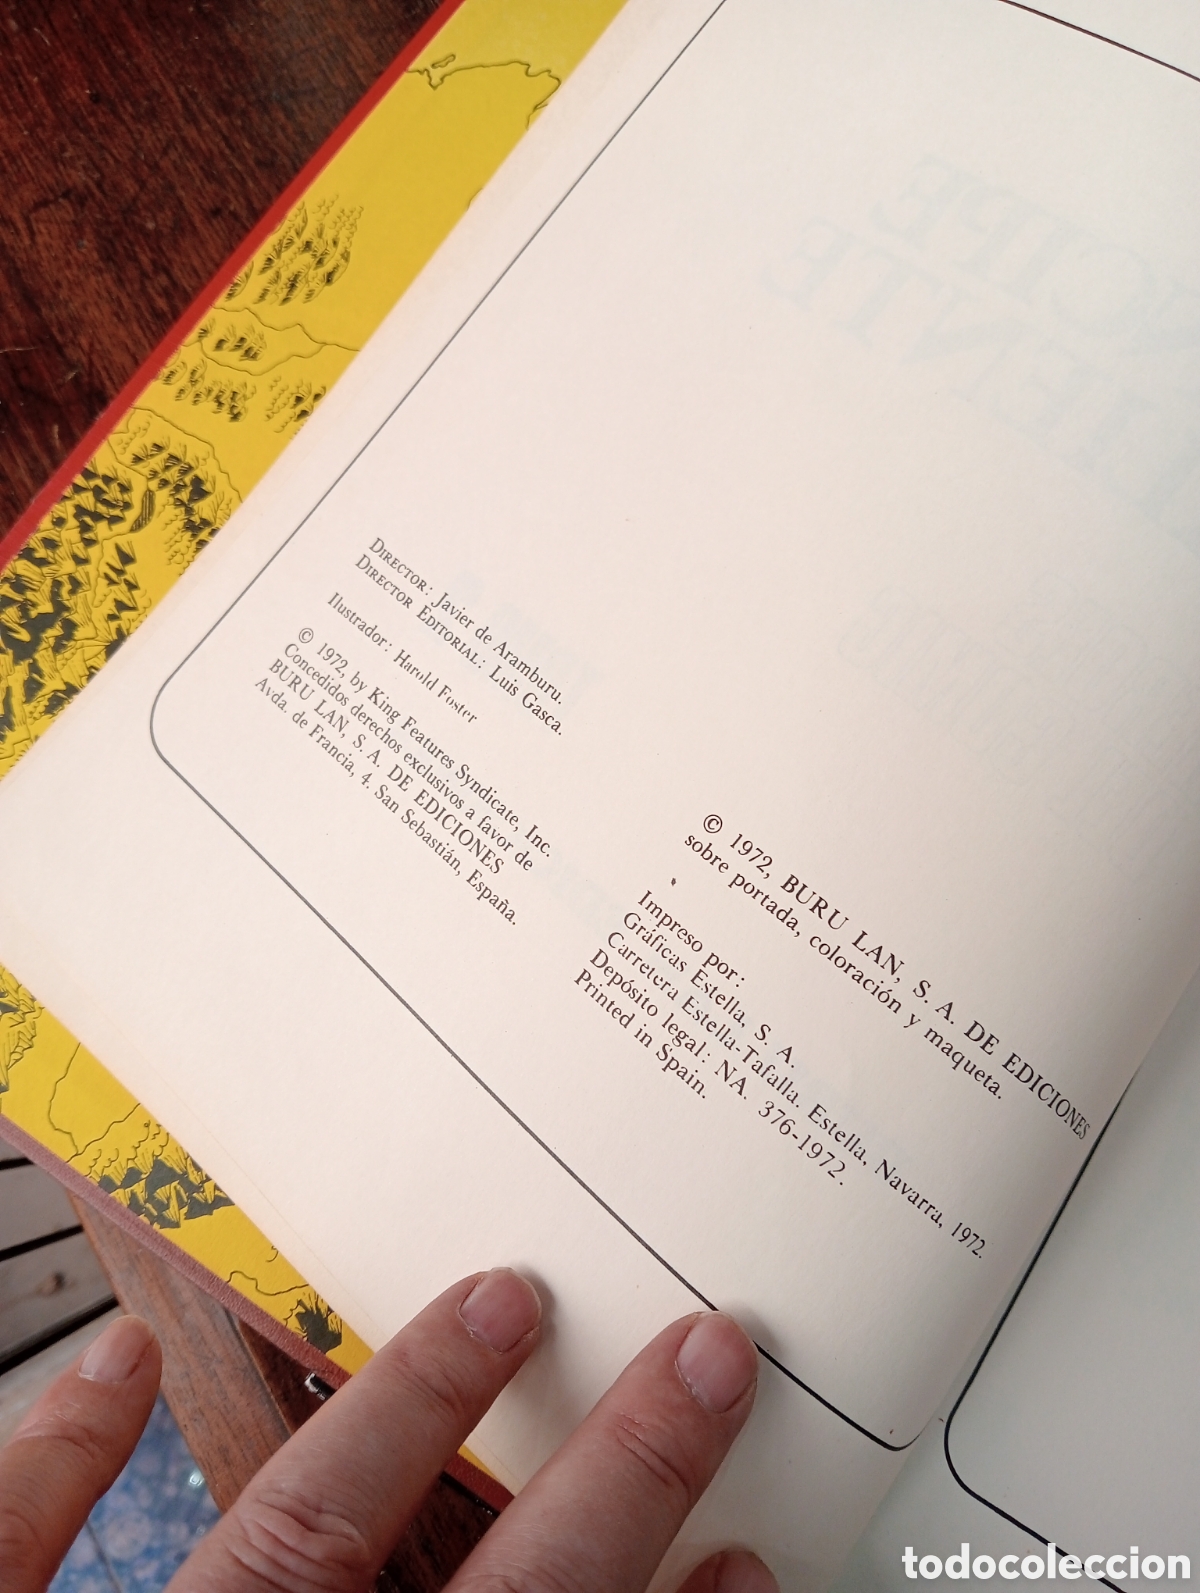 Director: Javier de Aramburu.
Director Editorial: Luis Gasca.
Ilustrador: Harold Foster
© 1972, by King Features Syndicate, Inc.
Concedidos derechos exclusivos a favor de
BURU LAN, S. A. DE EDICIONES
Avda. de Francia, 4. San Sebastián, España.
© 1972, BURU LAN, S. A. DE EDICIONES
sobre portada, coloración y maqueta.
Impreso por:
Gráficas Estella, S. A.
Carretera Estella-Tafalla. Estella, Navarra, 1972.
Depósito legal: NA. 376-1972.
Printed in Spain.
todocoleccion